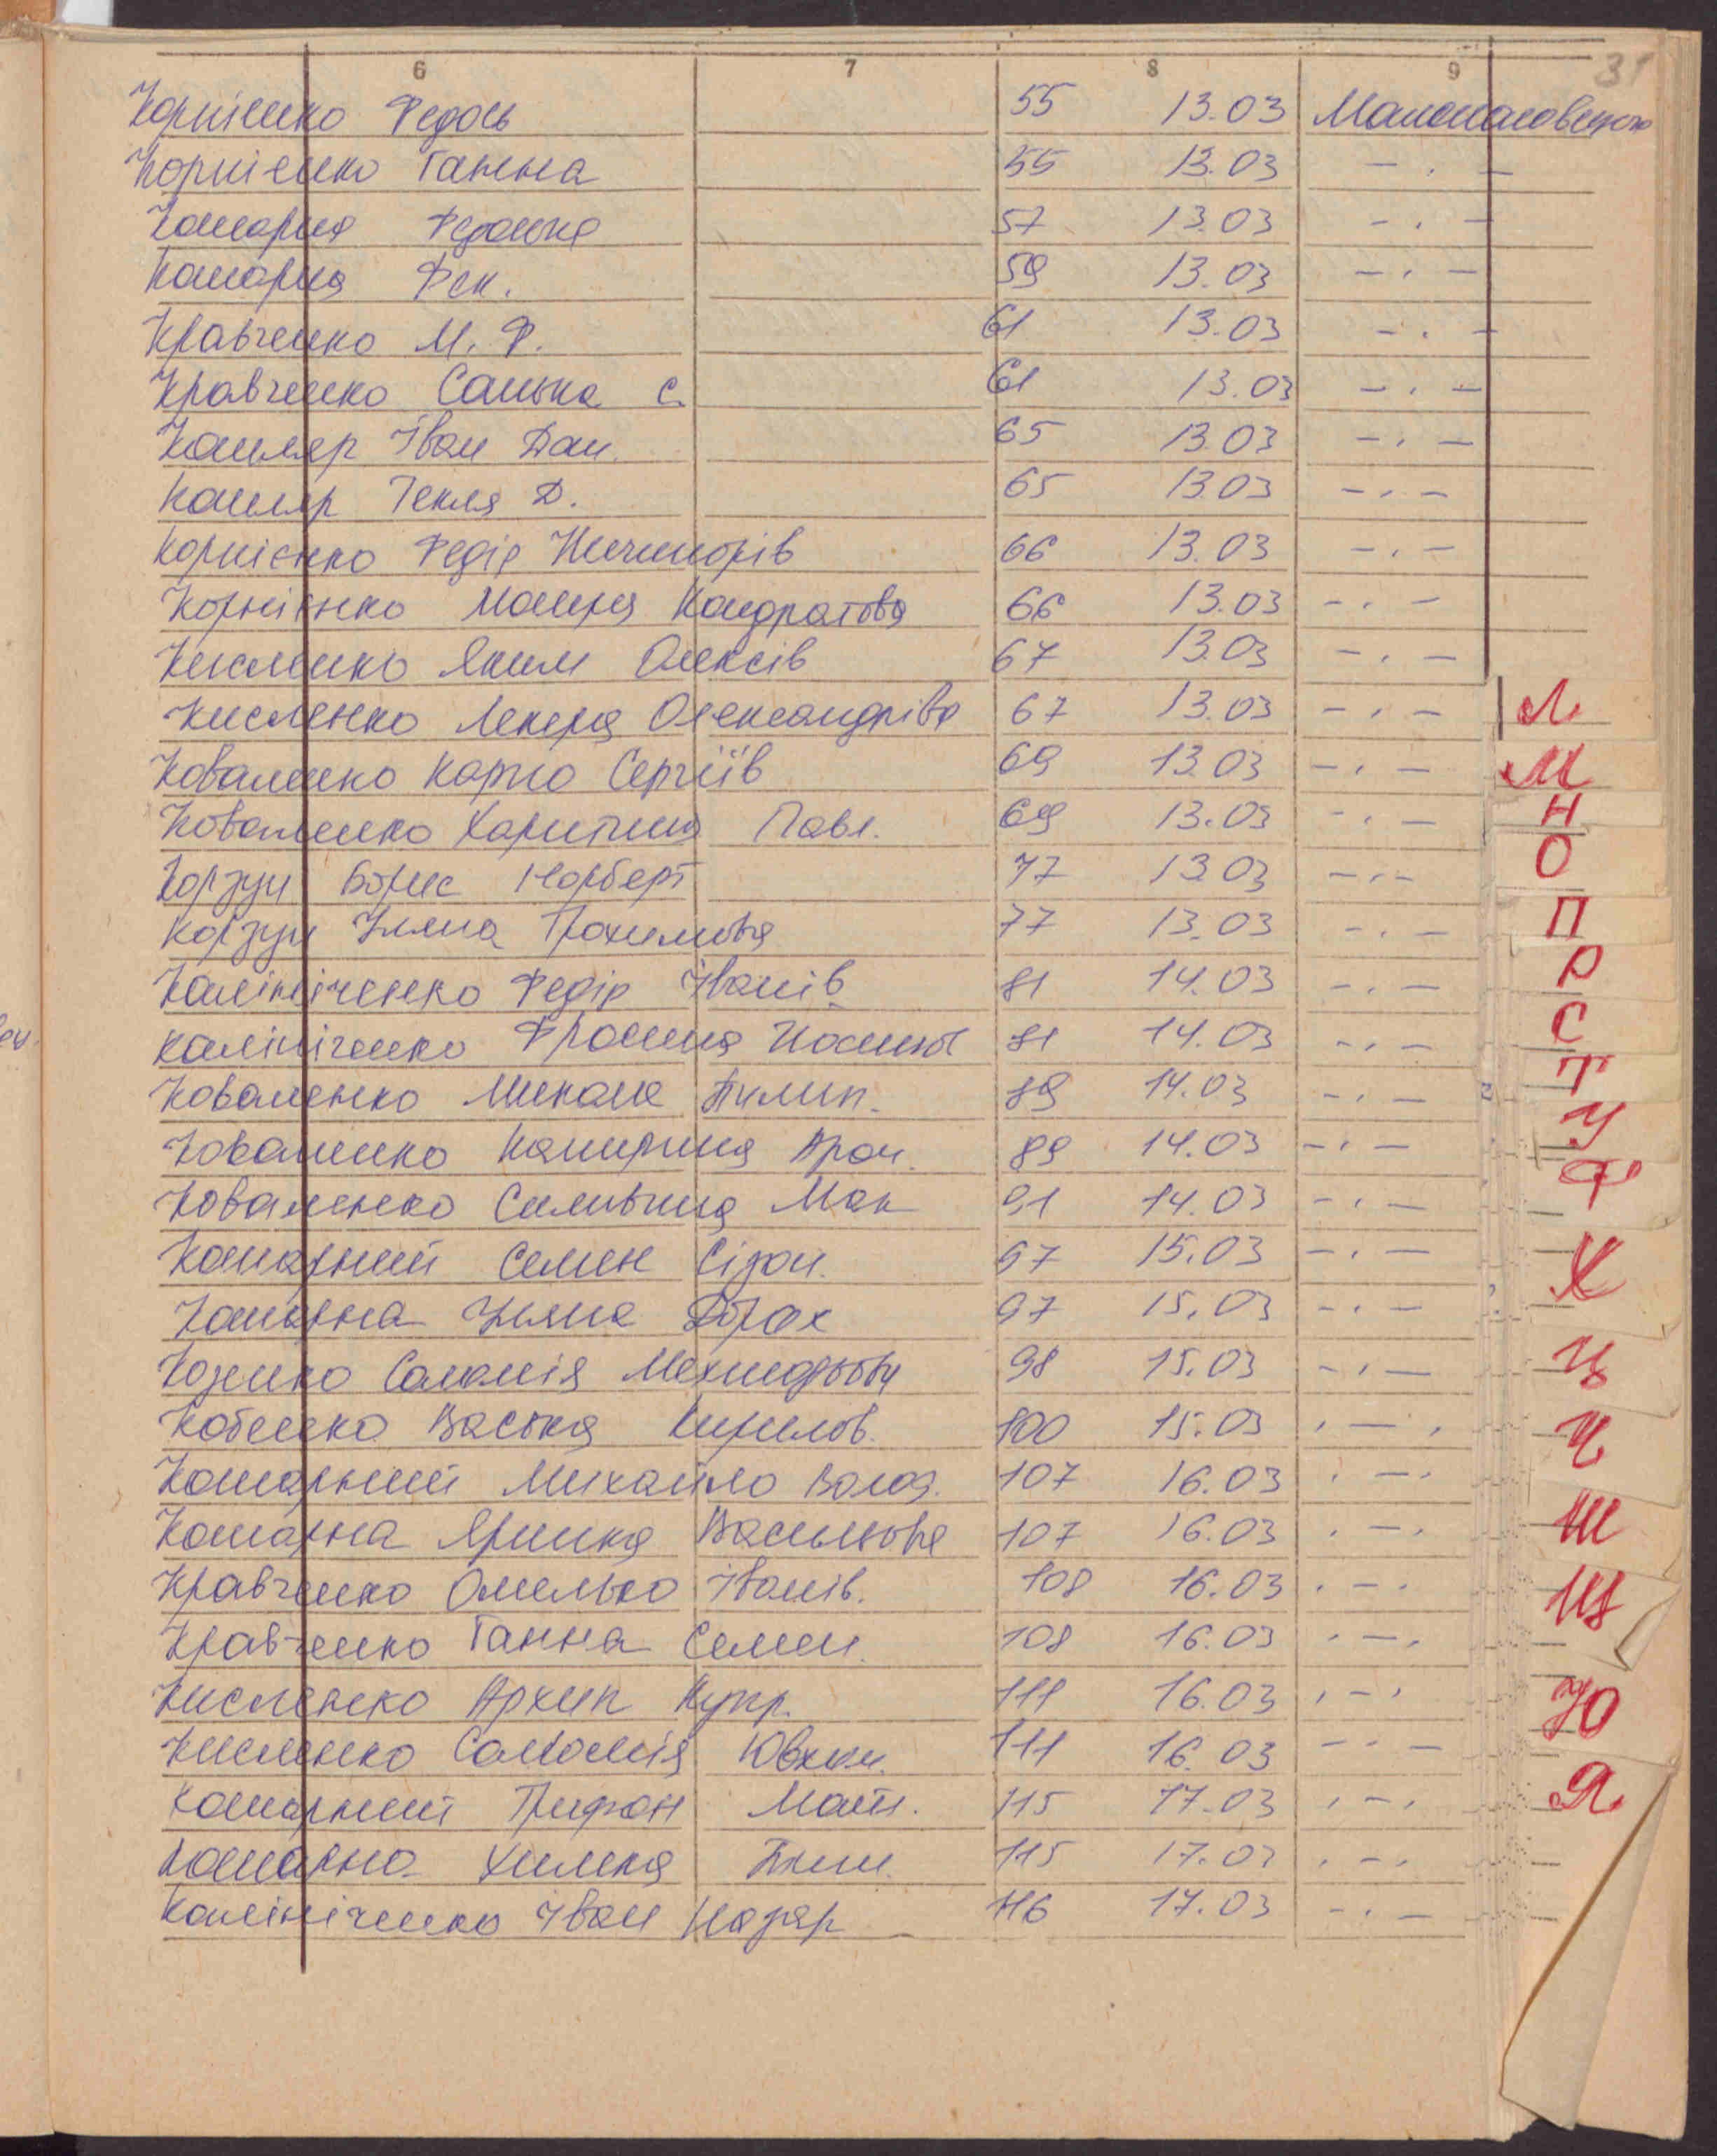 6 7 8 9 31
Корнієнко Федось 55 13.03
Корнієнко Ганна 55 13.03 - . -
Комарня Федоська 57 13.03 - . -
Комарня Фек. 59 13.03 - . -
Кравченко М. Ф. 61 13.03 - . -
Кравченко Санька С. 61 13.03 - . -
Кошляр Іван Дан. 65 13.03 - . -
Кошляр Текля Д. 65 13.03 - . -
Корнієнко Федір Ничипорів 66 13.03 - . -
Корнієнко Мотря Кондратова 66 13.03 - . -
Кисленко Яким Олексів 67 13.03 - . -
Кисленко Лекеря Олександрівна 67 13.03 - . - Л
Коваленко Карпо Сергіїв 69 13.03 - . - М
Коваленко Харитина Павл. 69 13.03 - . - Н
Корзун Борис Норберт 77 13.03 - . - О
Корзун Уляна Трохимовна 77 13.03 - . - П
Калініченко Федір Іванів 81 14.03 - . - Р
Калініченко Фросина 81 14.03 - . - С
Коваленко Микола Пилип. 89 14.03 - . - Т
Коваленко Катирина 89 14.03 - . - У
Коваленко Мак 91 14.03 - . - Ф
Комарний Семен Сидон. 97 15.03 - . - Х
Комарна Уляна 97 15.03 - . -
Козенко Соломія 98 15.03 - . - Ц
Васька Кирилов. 100 15.03 . - . Ч
Комарний Михайло Волод. 107 16.03 . - .
Комарна Яринка Васильовна 107 16.03 . - . Ш
Кравченко Омелько Іванів. 108 16.03 . - . Щ
Кравченко Ганна Семен. 108 16.03 . - .
Кисленко Архип Купр. 111 16.03 . - . Ю
Кисленко Соломія Ювхим. 111 16.03 - . -
Комарний Трифон Матв. 115 17.03 . - . Я
Комарна Химка 115 17.03 . - .
Калініченко Іван Назар 116 17.03 - . -